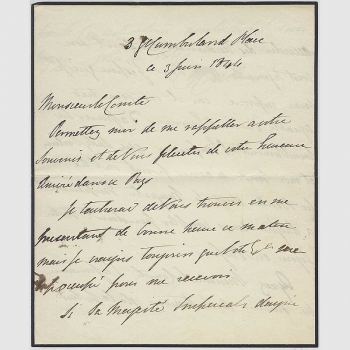 3 Cumberland Place
ce 3 Juin 1844
Monsieur le Comte
Permettez moi de me rappeller a votre
Souvenir et de Vous feliciter de votre heureuse
arrivée dans ce Pays
Je tacherai de Vous trouver en me
presentant de bonne heure ce matin
mais je crains toujours que
occupé pour me recevoir
Si Sa Majesté Imperiale daigne